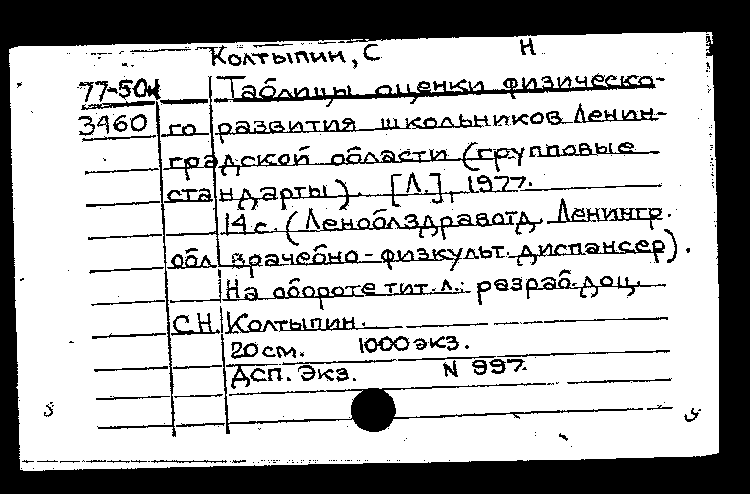 Колтыпин, С Н
77-50м Таблицы оценки физическо-
3460 го развития школьников Ленин-
градской области (групповые
стандарты). [Л.], 1977.
14 с. (Леноблздравотд. Ленингр.
обл. врачебно-физкульт. диспансер).
На обороте тит. л.: разраб. доц.
С.Н. Колтыпин.
20 см. 1000 экз.
Дсп. Экз. N 997.